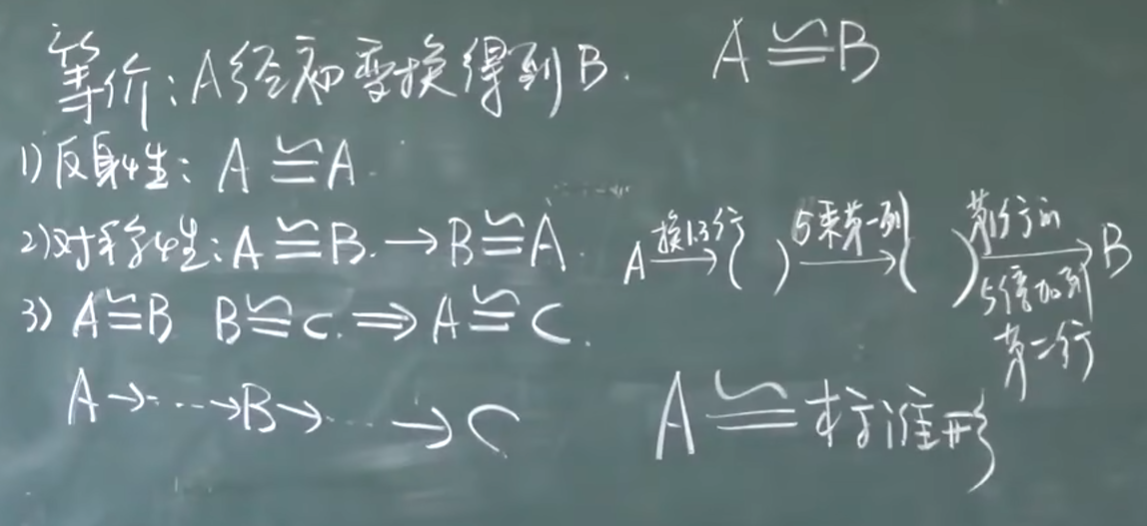 等价:A经初变换得到B. A≌B
1)反身性: A≌A.
2)对称性:A≌B.→B≌A.
3) A≌B B≌C.⇒A≌C.
A→…→B→…→C
A 换1.3行→( ) 5乘第一列→( ) 第1行的→B
5倍加到
第二行
A≌标准形